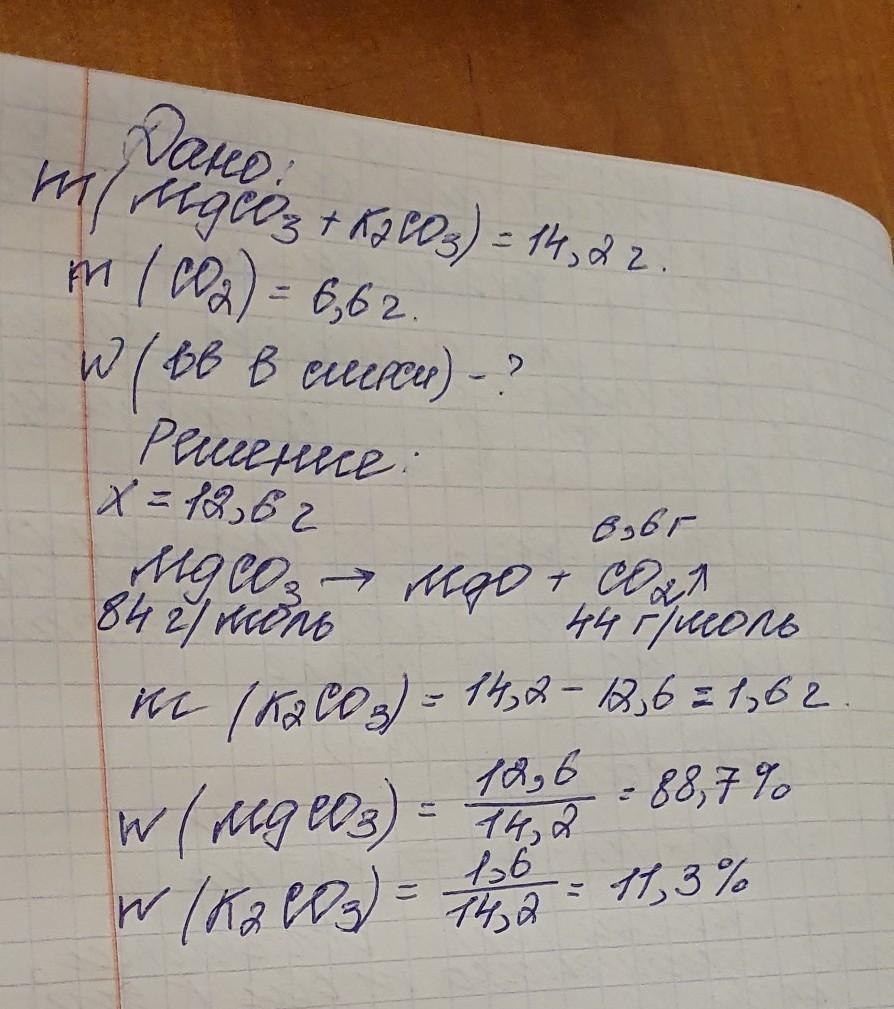 Дано:
m(MgCO3 + K2CO3) = 14,2 г.
m (CO2) = 6,6 г.
W (вв в смеси) - ?
Решение:
x = 12,6 г
6,6 г
MgCO3 → MgO + CO2↑
84 г/моль 44 г/моль
m (K2CO3) = 14,2 - 12,6 = 1,6 г.
W (MgCO3) = 12,6/14,2 = 88,7 %
W (K2CO3) = 1,6/14,2 = 11,3 %